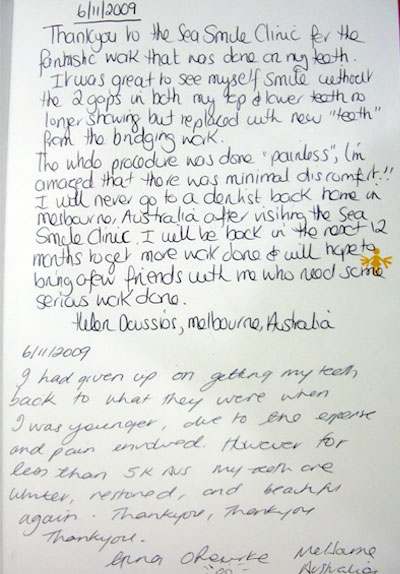 6/11/2009
Thankyou to the Sea Smile Clinic for the
fantastic work that was done on my teeth.
It was great to see myself smile without
the 2 gaps in both my top & lower teeth no
longer showing but replaced with new "teeth"
from the bridging work.
The whole procedure was done "painless", I'm
amazed that there was minimal discomfort!!
I will never go to a dentist back home in
melbourne, Australia after visiting the Sea
Smile Clinic. I will be back in the next 12
months to get more work done & will hope to
bring a few friends with me who need some
serious work done.
Helen Doussios, melbourne, Australia
6/11/2009
I had given up on getting my teeth
back to what they were when
I was younger, due to the expense
and pain involved. However for
less than 5K AUS my teeth are
whiter, restored, and beautiful
again. Thankyou, Thankyou
Thankyou.
O'Rourke Melbourne
Australia